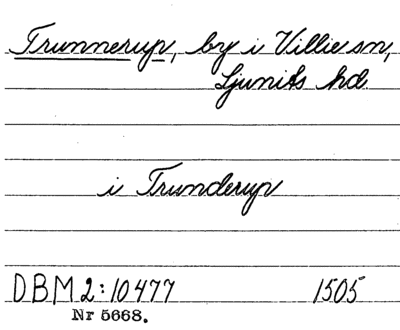 Trunnerup, by i Villie sn,
Ljunits hd
i Trunderup
DBM 2:10477 1505
Nr 5668.